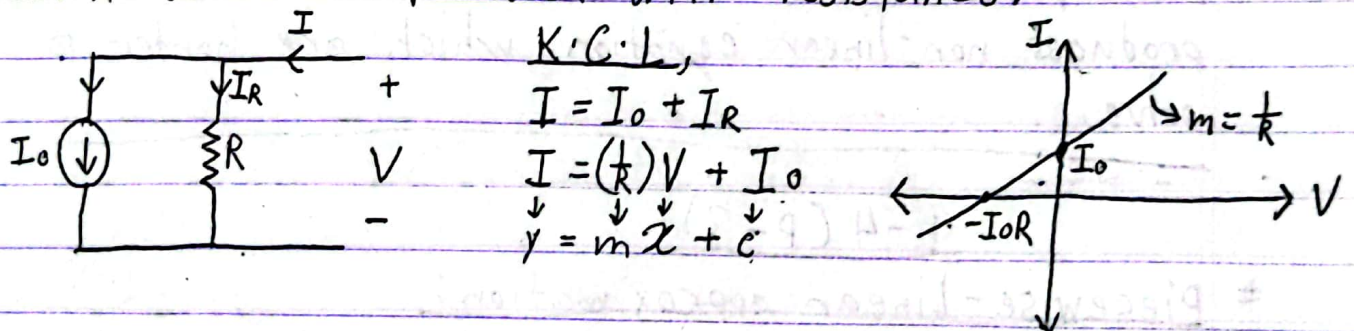 I
IR
I₀
R
+
V
-
K.C.L,
I = I₀ + IR
I = (1/R)V + I₀
↓ ↓ ↓ ↓
y = m x + c
I
m = 1/R
I₀
V
-I₀R